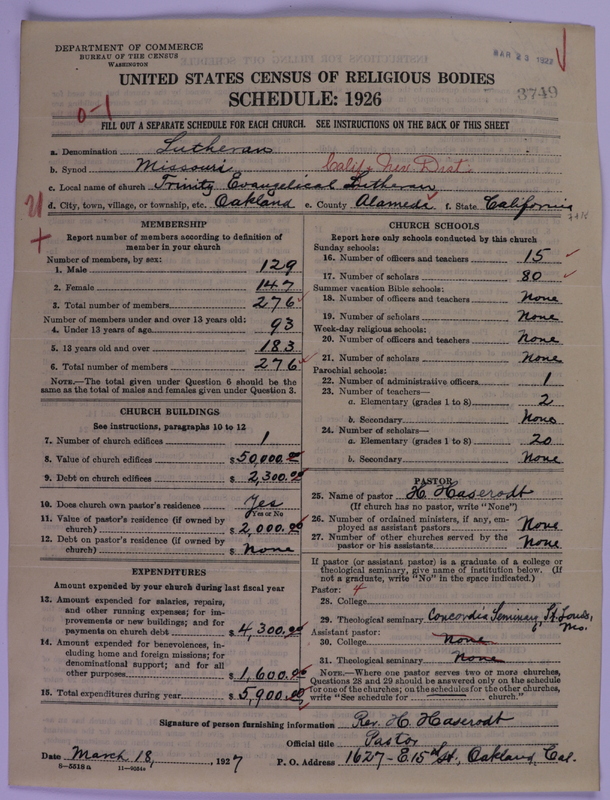 DEPARTMENT OF COMMERCE
BUREAU OF THE CENSUS
WASHINGTON
MAR 23 1927
UNITED STATES CENSUS OF RELIGIOUS BODIES
SCHEDULE: 1926
3749
0-1
FILL OUT A SEPARATE SCHEDULE FOR EACH CHURCH. SEE INSTRUCTIONS ON THE BACK OF THIS SHEET
a. Denomination Lutheran
b. Synod Missouri Calif. Nev. Dist.
c. Local name of church Trinity Evangelical Lutheran
d. City, town, village, or township, etc. Oakland e. County Alameda f. State California
MEMBERSHIP
Report number of members according to definition of member in your church
Number of members, by sex:
1. Male 129
2. Female 147
3. Total number of members 276
Number of members under and over 13 years old:
4. Under 13 years of age 93
5. 13 years old and over 183
6. Total number of members 276
NOTE.—The total given under Question 6 should be the
same as the total of males and females given under Question 3.
CHURCH BUILDINGS
See instructions, paragraphs 10 to 12
7. Number of church edifices 1
8. Value of church edifices $50,000.00
9. Debt on church edifices $2,300.00
10. Does church own pastor's residence? Yes
Yes or No
11. Value of pastor's residence (if owned by
church) $2,000.00
12. Debt on pastor's residence (if owned by
church) $None
EXPENDITURES
Amount expended by your church during last fiscal year
13. Amount expended for salaries, repairs,
and other running expenses; for im-
provements or new buildings; and for
payments on church debt $4,300.00
14. Amount expended for benevolences, in-
cluding home and foreign missions; for
denominational support; and for all
other purposes $1,600.00
15. Total expenditures during year $5,900.00
CHURCH SCHOOLS
Report here only schools conducted by this church
Sunday schools:
16. Number of officers and teachers 15
17. Number of scholars 80
Summer vacation Bible schools:
18. Number of officers and teachers None
19. Number of scholars None
Week-day religious schools:
20. Number of officers and teachers None
21. Number of scholars None
Parochial schools:
22. Number of administrative officers 1
23. Number of teachers—
a. Elementary (grades 1 to 8) 2
b. Secondary None
24. Number of scholars—
a. Elementary (grades 1 to 8) 20
b. Secondary None
PASTOR
25. Name of pastor H. Haserodt
(If church has no pastor, write "None")
26. Number of ordained ministers, if any, em-
ployed as assistant pastors None
27. Number of other churches served by the
pastor or his assistants None
If pastor (or assistant pastor) is a graduate of a college or
theological seminary, give name of institution below. (If
not a graduate, write "No" in the space indicated.)
Pastor: 4
28. College
29. Theological seminary Concordia Seminary, St. Louis, Mo.
Assistant pastor:
30. College None
31. Theological seminary None
NOTE.—Where one pastor serves two or more churches,
Questions 28 and 29 should be answered only on the schedule
for one of the churches; on the schedules for the other churches,
write "See schedule for church."
Signature of person furnishing information Rev. H. Haserodt
Official title Pastor
Date March 18, 1927 P. O. Address 1627-E. 15th St., Oakland, Cal.
8-5518a